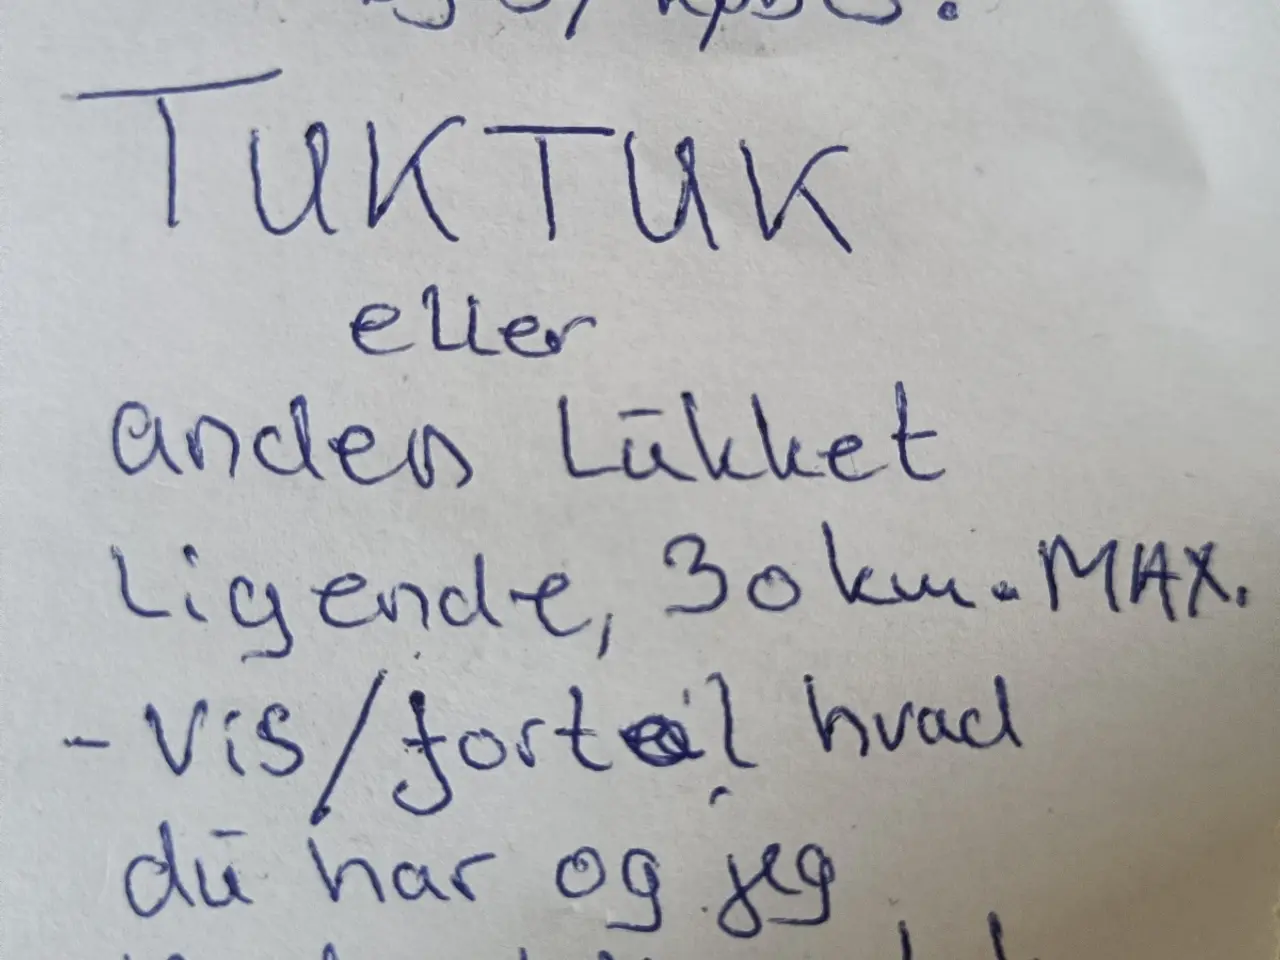 TUKTUK
eller
anden Lukket
Ligende, 30 km. MAX.
- Vis/fortæl hvad
du har og jeg